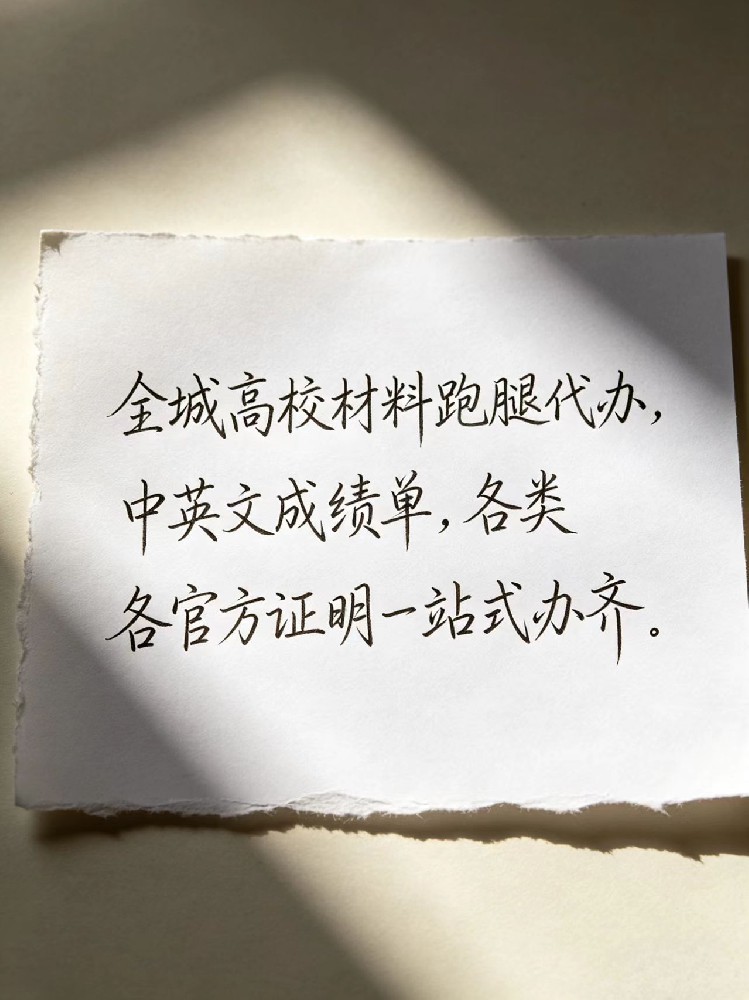 全城高校材料跑腿代办，
中英文成绩单，各类
各官方证明一站式办齐。